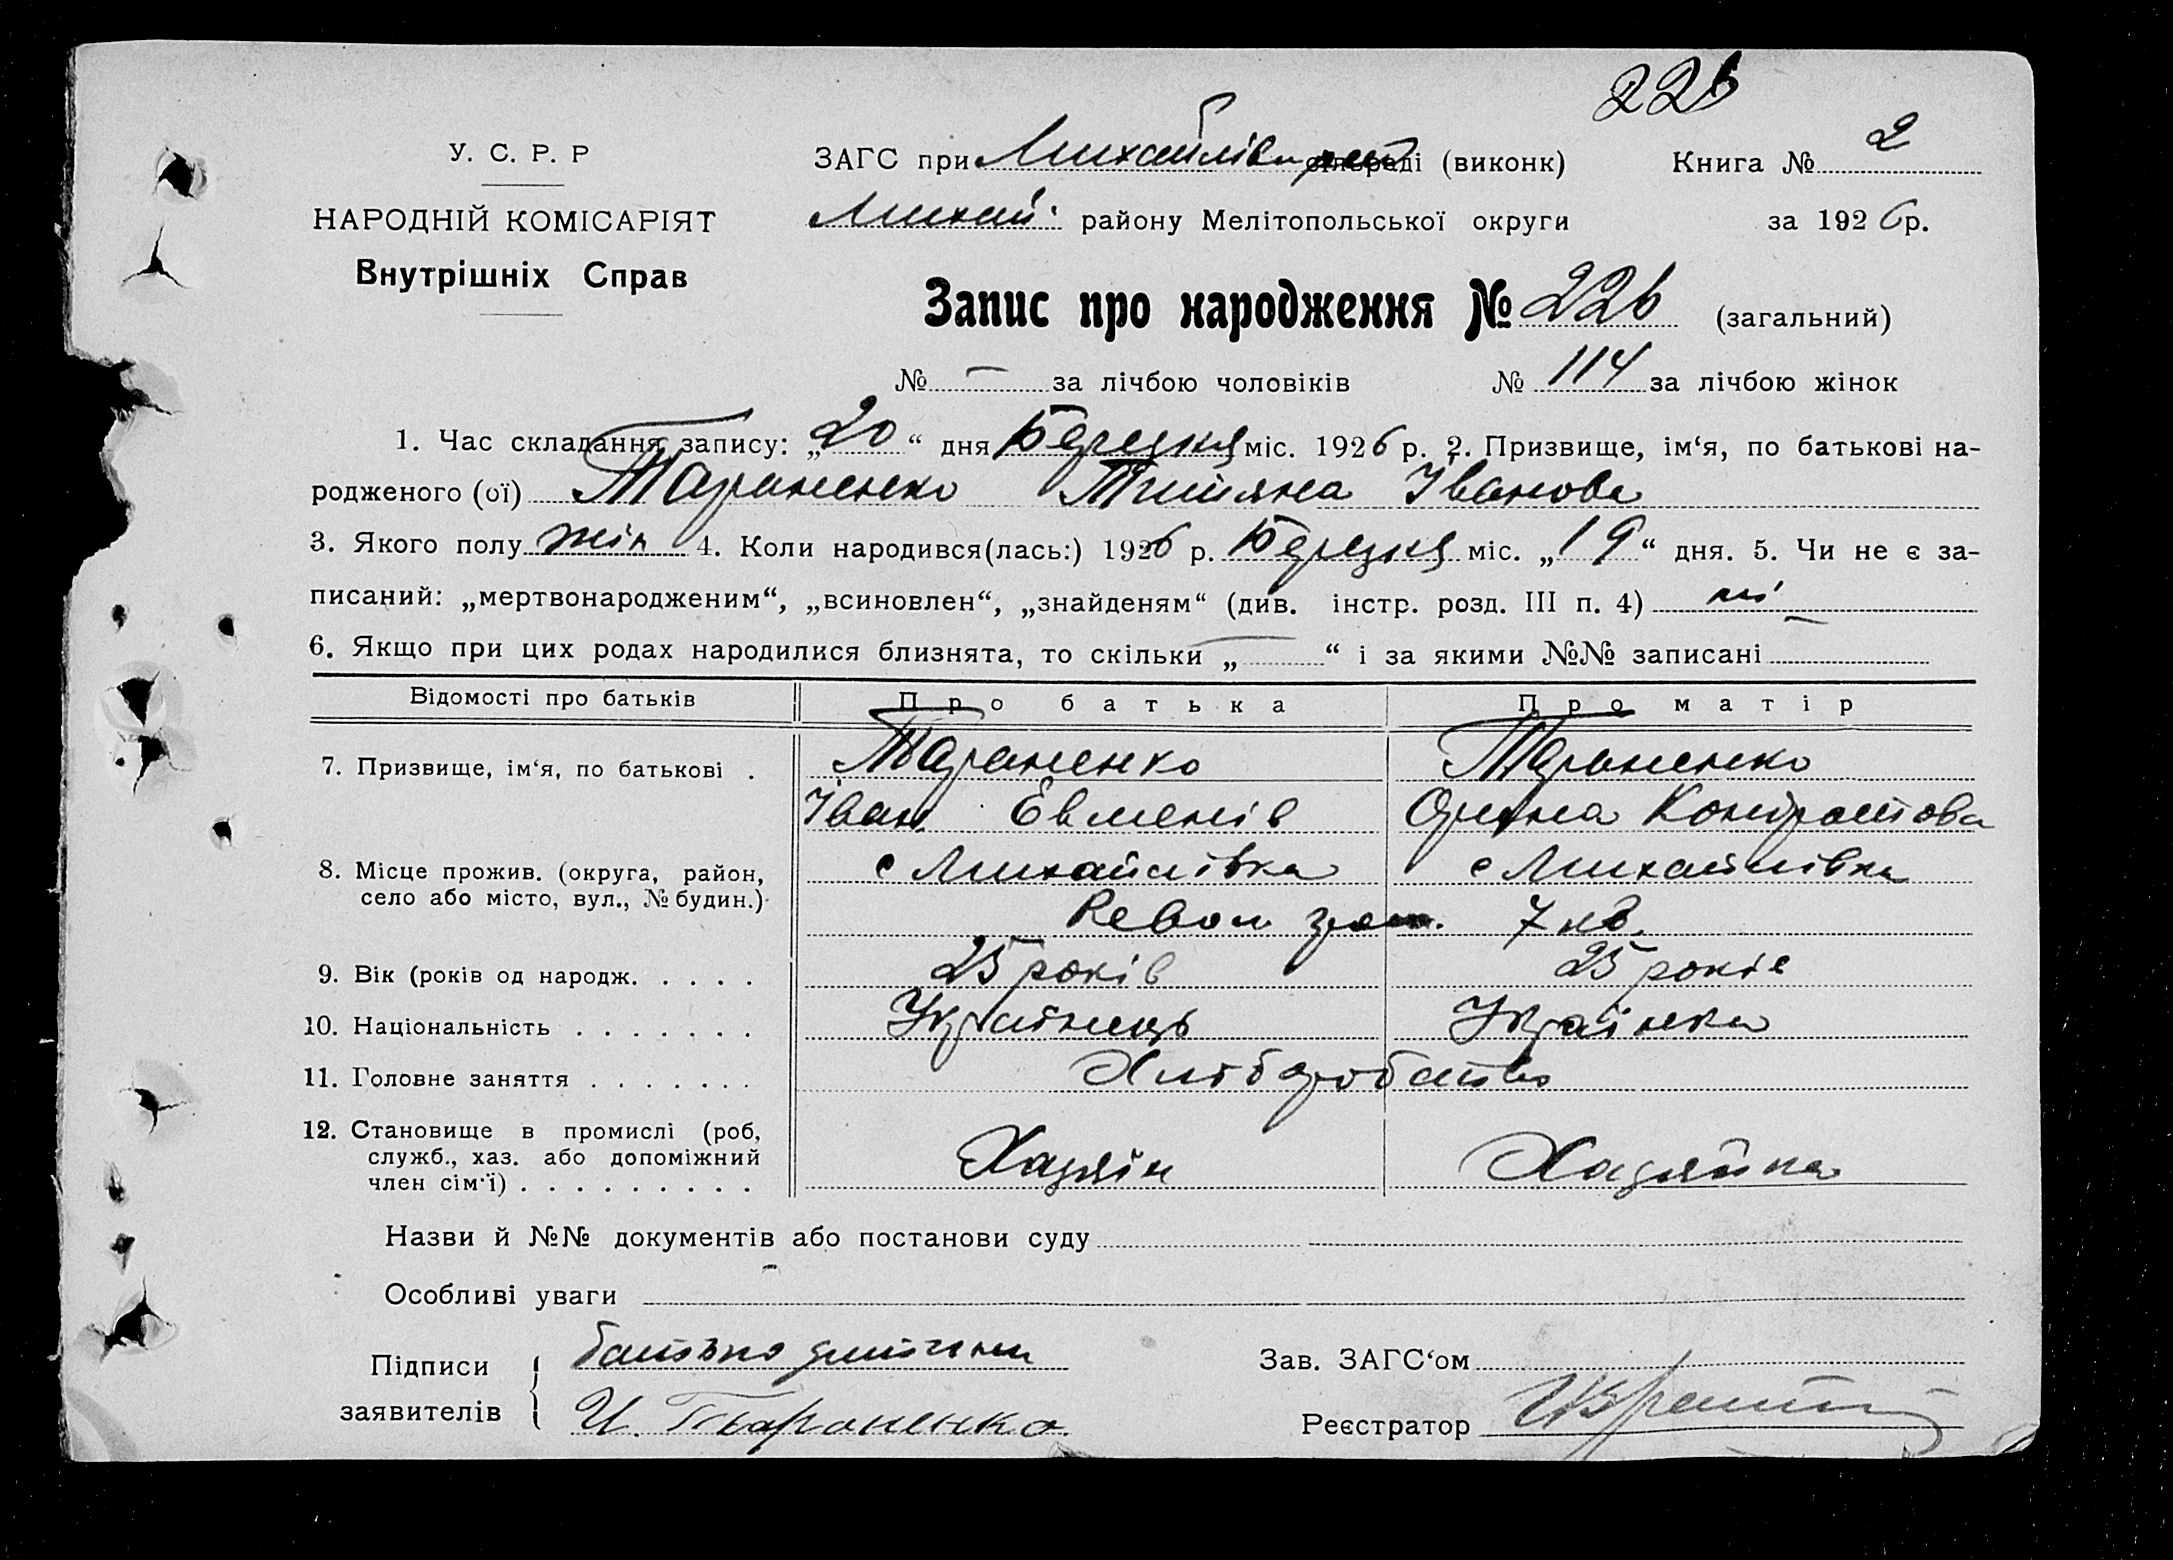 226
У. С. Р. Р
ЗАГС при Михайлівськ рай сільраді (виконк) Книга № 2
НАРОДНІЙ КОМІСАРІЯТ
Михай: району Мелітопольської округи за 1926 р.
Внутрішніх Справ
Запис про народження № 226 (загальний)
№ — за лічбою чоловіків № 114 за лічбою жінок
1. Час складання запису: „20“ дня Березня міс. 1926 р. 2. Призвище, ім‘я, по батькові на-
родженого (ої) Тараненко Титяна Іванова
3. Якого полу жін 4. Коли народився(лась:) 1926 р. Березня міс. „19“ дня. 5. Чи не є за-
писаний: „мертвонародженим“, „всиновлен“, „знайденям“ (див. інстр. розд. III п. 4) ні
6. Якщо при цих родах народилися близнята, то скільки „—“ і за якими №№ записані —
Відомості про батьків Про батька Про матір
7. Призвище, ім‘я, по батькові . Тараненко Тараненко
Іван Евменів Орина Кондратова
8. Місце прожив. (округа, район, с Михайлівка с Михайлівка
село або місто, вул., № будин.) Револ гром. 7 кв.
9. Вік (років од народж. . . . . 25 років 25 років
10. Національність . . . . . . . Українець Українка
11. Головне заняття . . . . . . . Хліборобство
12. Становище в промислі (роб,
служб., хаз. або допоміжний Хазяїн Хазяйка
член сім‘ї) . . . . . . . . .
Назви й №№ документів або постанови суду
Особливі уваги —
Підписи батько дитини Зав. ЗАГС‘ом
заявителів И. Тараненко Реєстратор